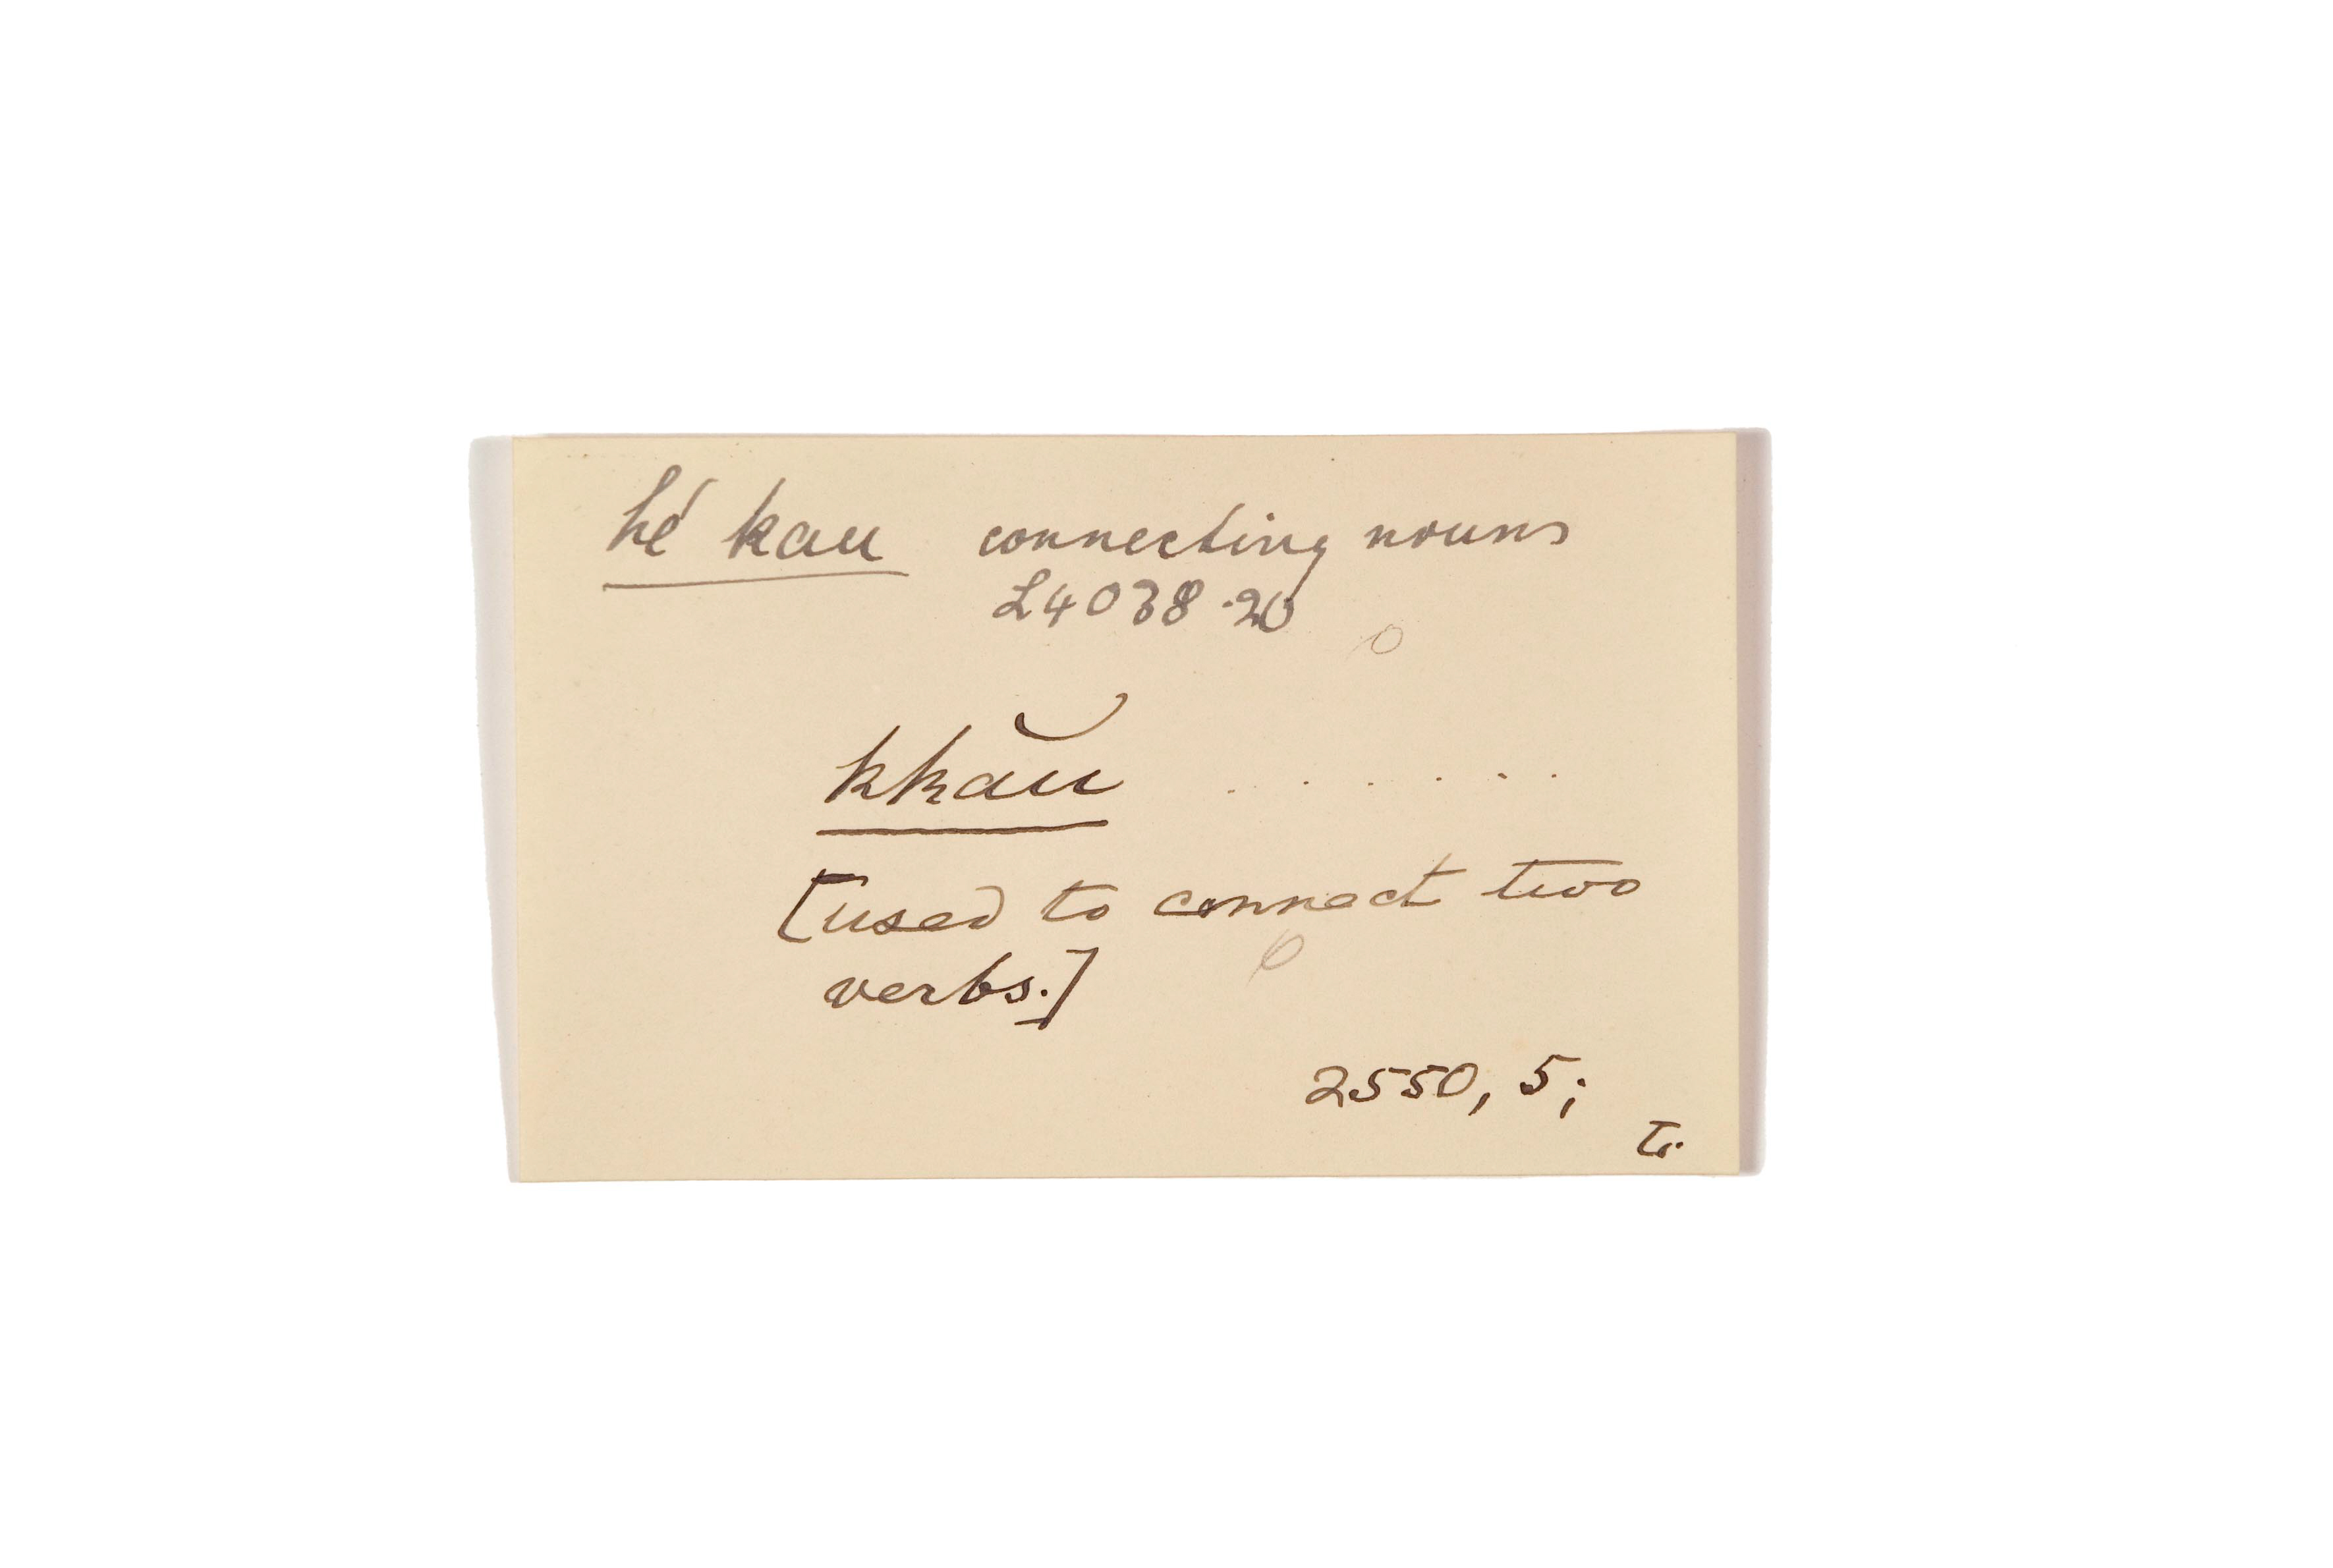 hé kau connecting nouns
L4038.20
kkău . . . . . . .
[used to connect two
verbs.]
2550, 5;